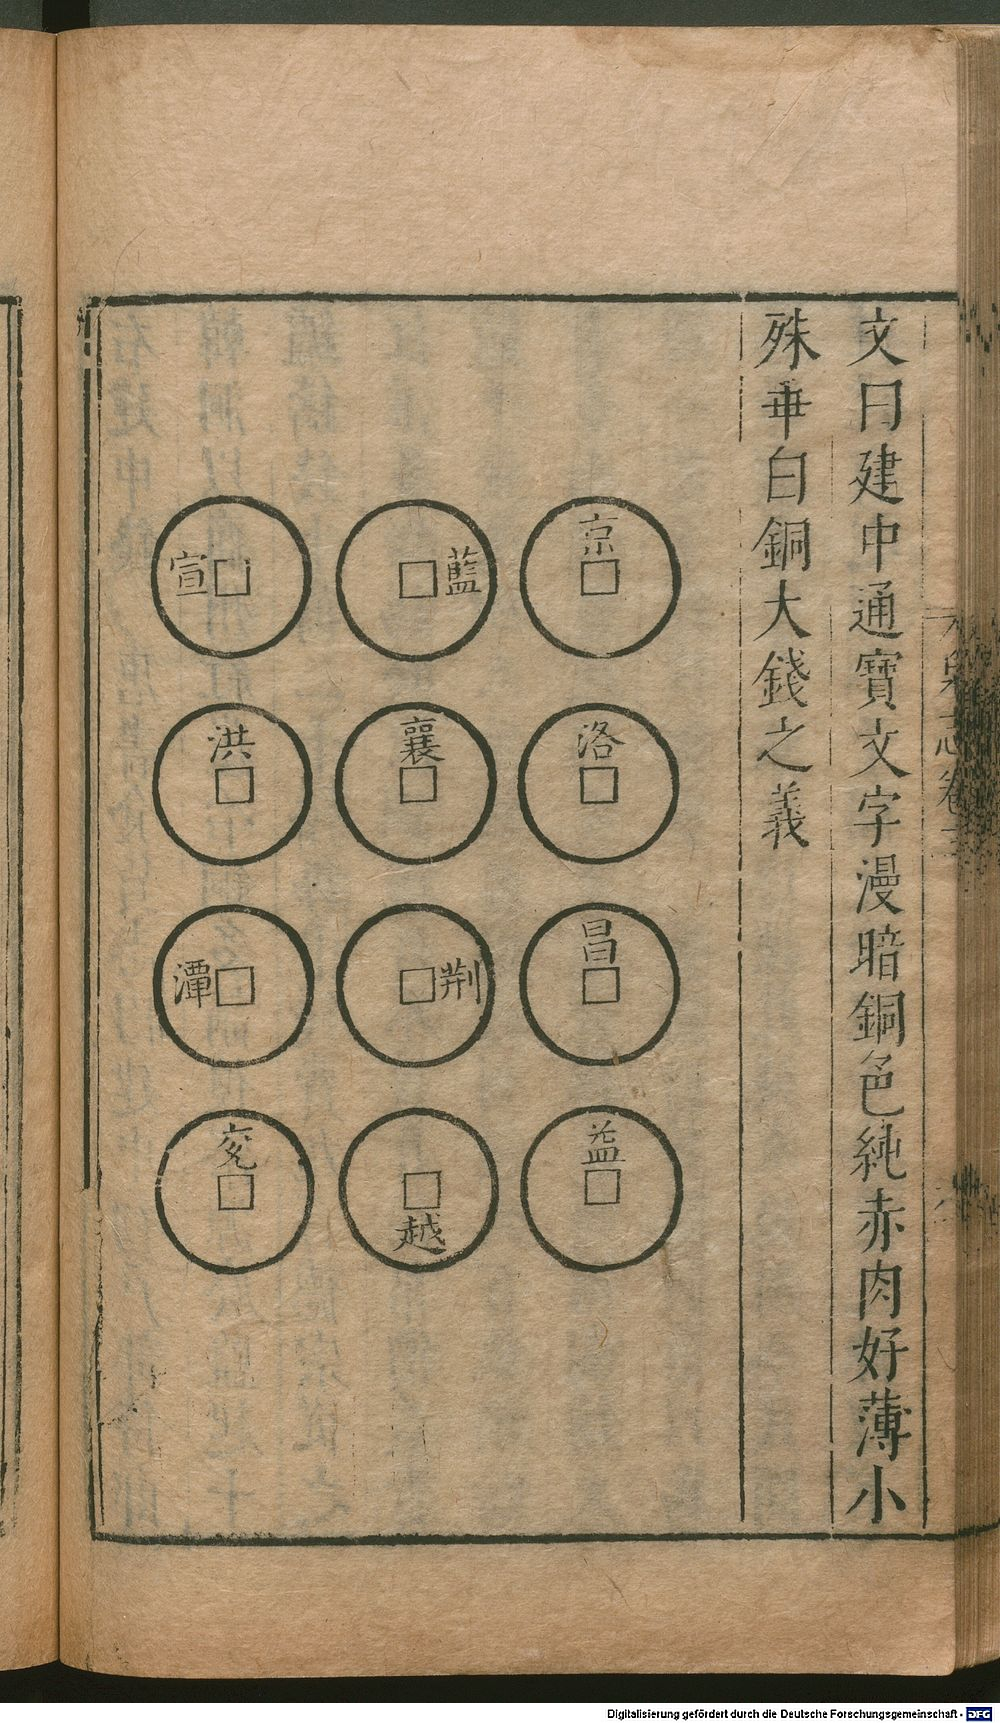 文曰建中通寶文字漫暗銅色純赤肉好薄小
殊乖白銅大錢之義
京
洛
昌
益
藍
襄
荆
越
宣
洪
潭
兖
泉志卷三
Digitalisierung gefördert durch die Deutsche Forschungsgemeinschaft - DFG